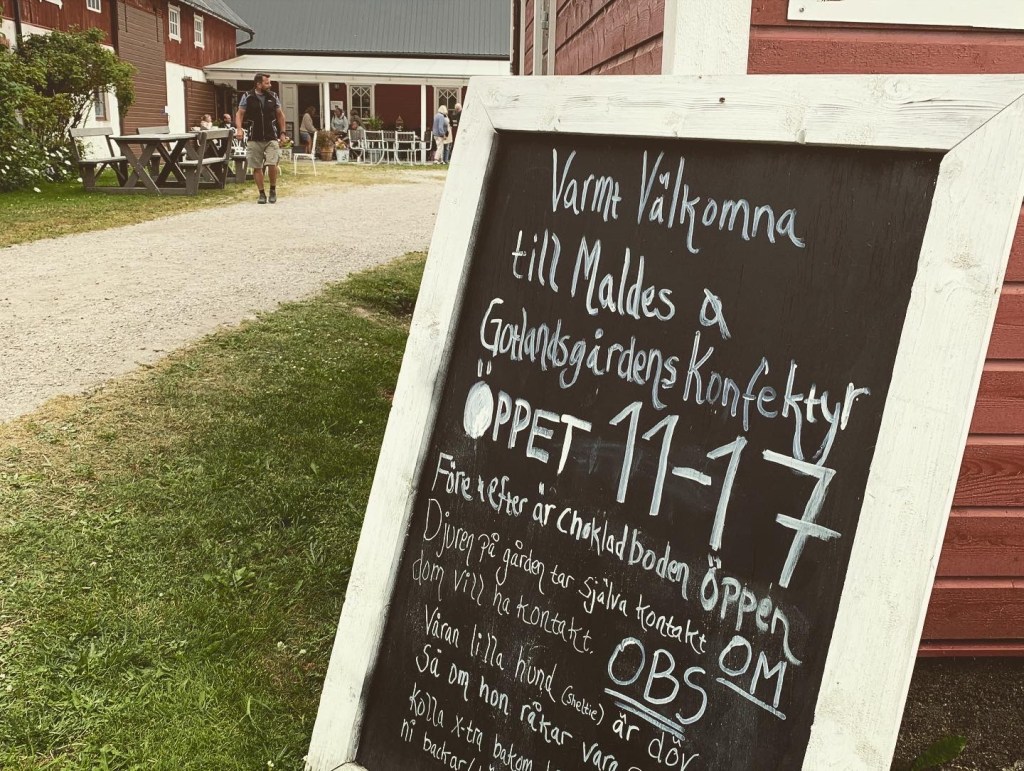 Varmt Välkomna
till Maldes &
Gotlandsgårdens Konfektyr
ÖPPET 11-17
Före & efter är Chokladboden Öppen
Djuren på gården tar själva kontakt OM
dom vill ha kontakt. OBS
Våran lilla hund (sheltie) är döv
Så om hon råkar vara
Kolla x-tra bakom
ni backar